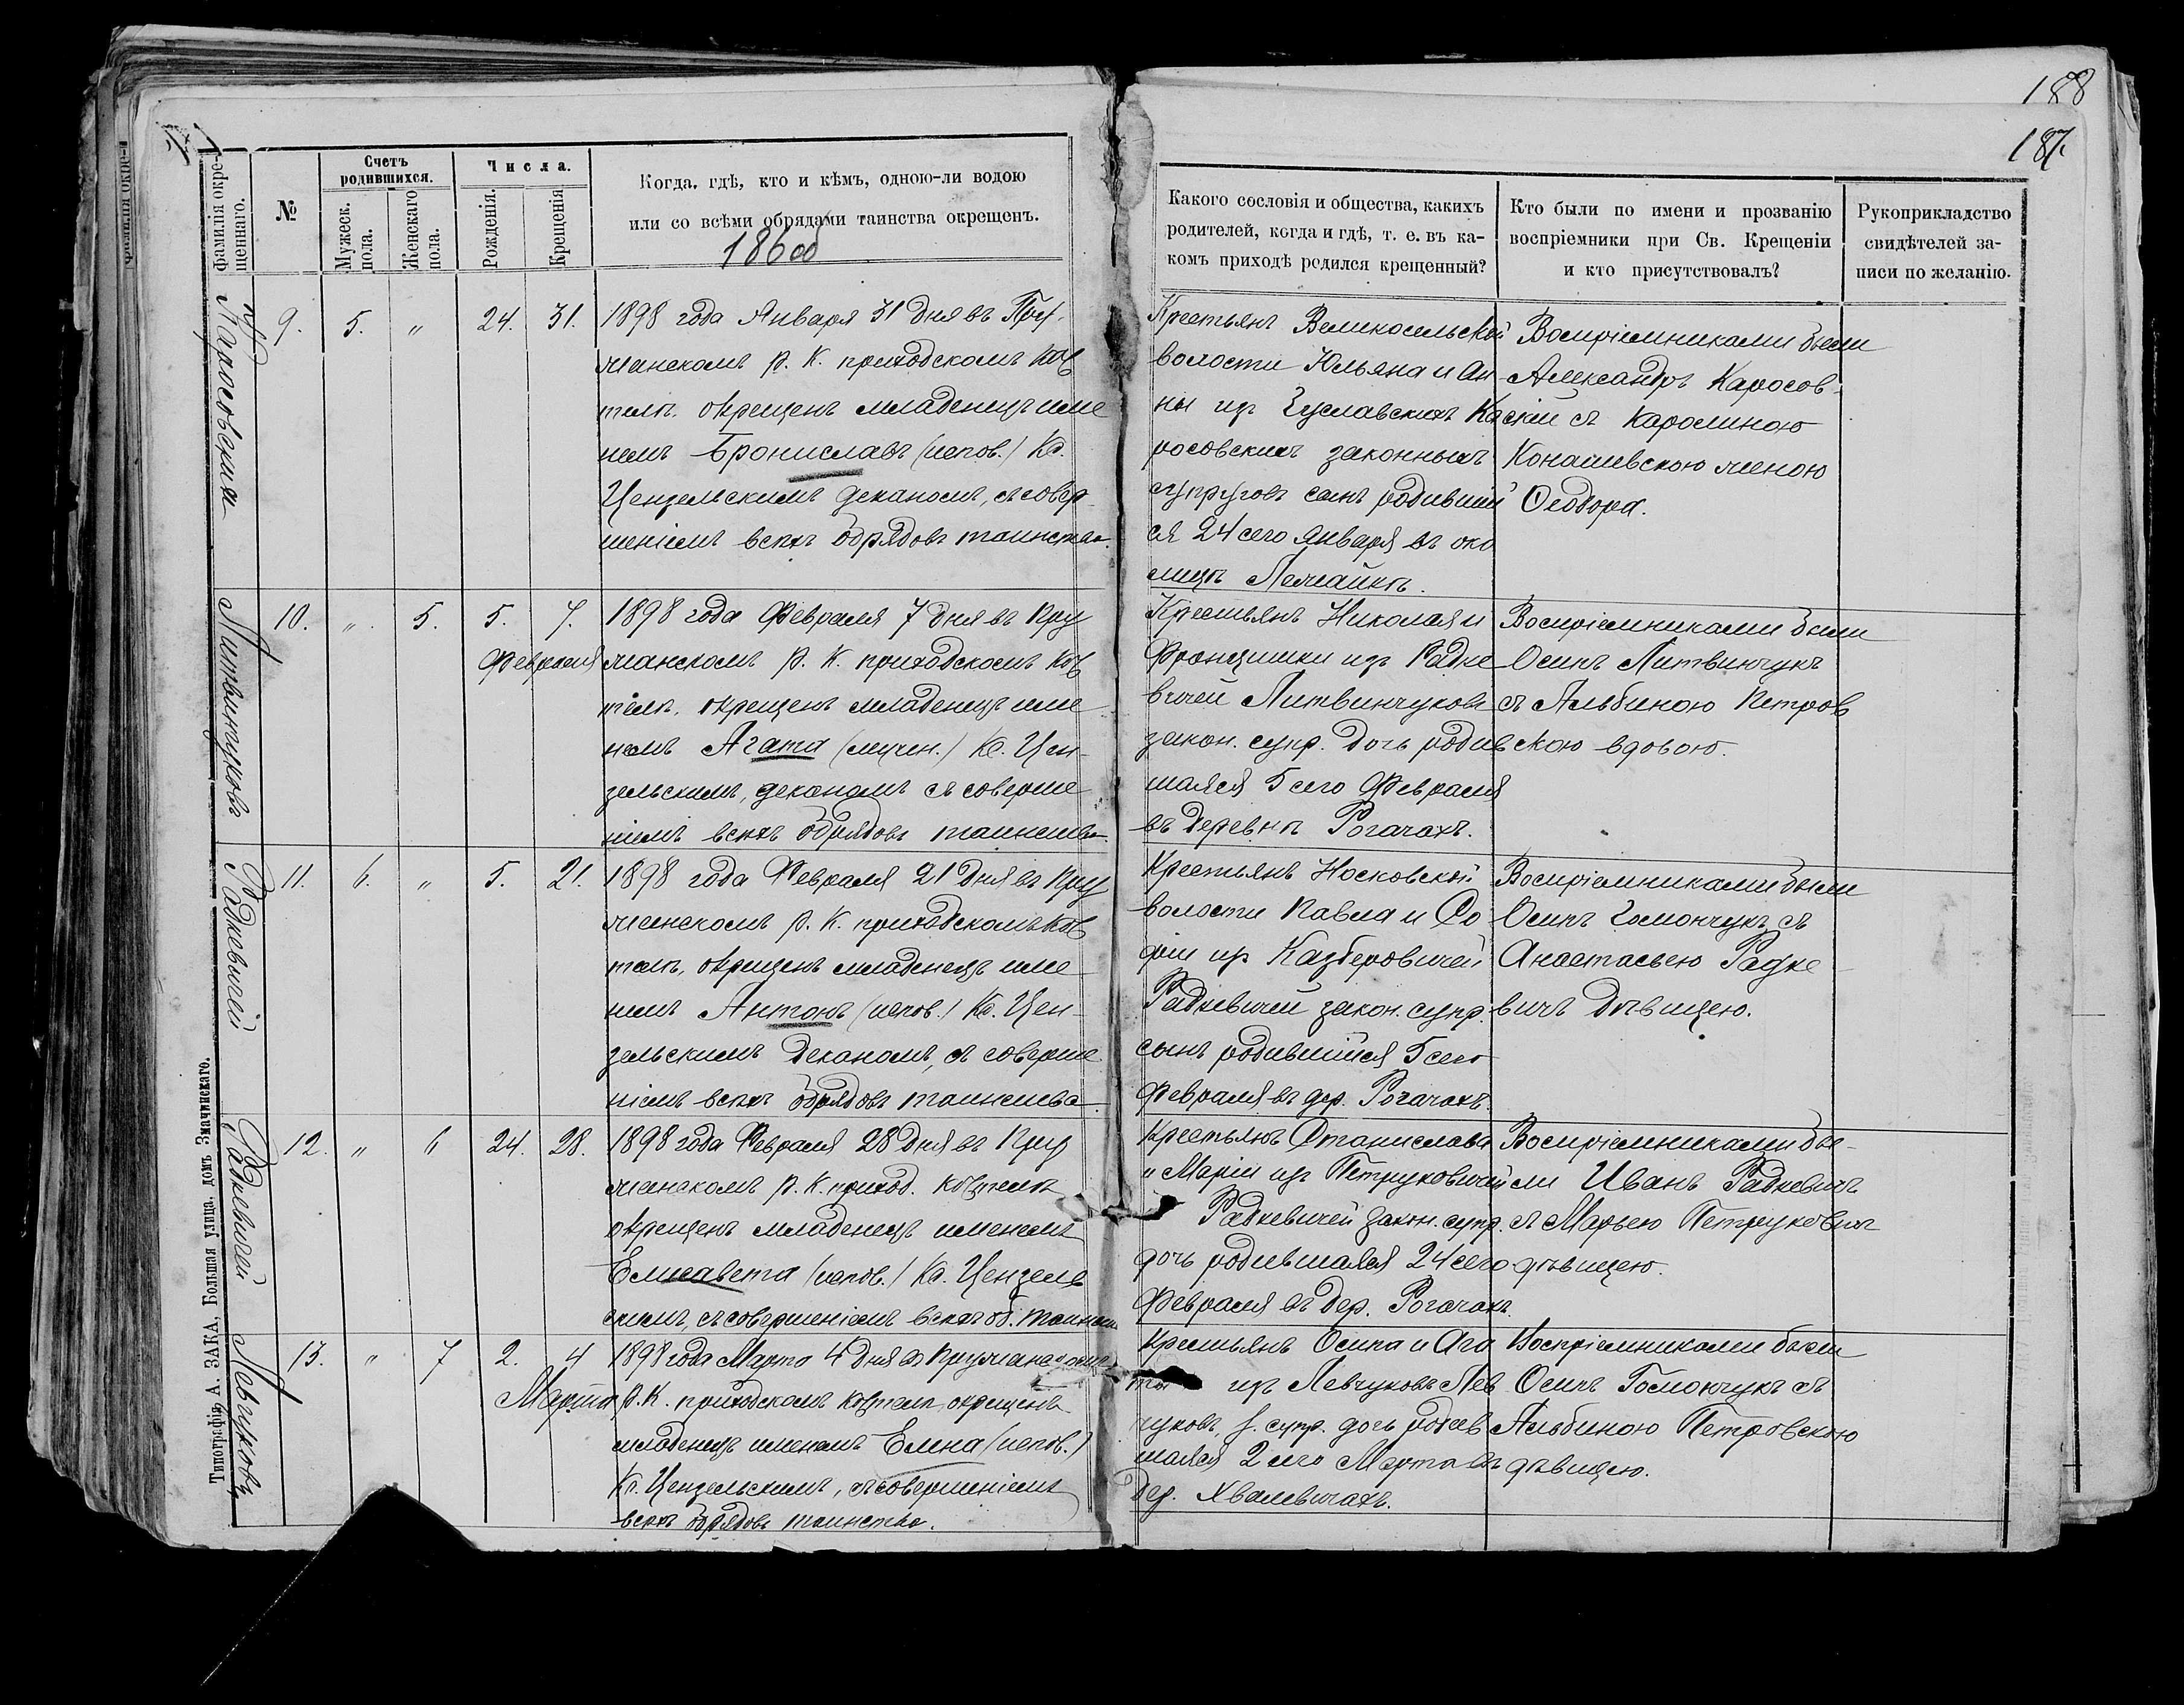 188
187.
фамилія окре-
щеннаго.
№
Счетъ
родившихся.
Мужеск.
пола.
Женскаго
пола.
Числа.
Рожденія.
Крещенія
Когда, гдѣ, кто и кѣмъ, одною-ли водою
или со всѣми обрядами таинства окрещенъ.
Какого сословія и общества, какихъ
родителей, когда и гдѣ, т. е. въ ка-
комъ приходѣ родился крещенный?
Кто были по имени и прозванію
воспріемники при Св. Крещеніи
и кто присутствовалъ?
Рукоприкладство
свидѣтелей за-
писи по желанію.
Каросовскихъ
9. 5. " 24. 31.
1898 года Января 31 дня въ Пру
жанскомъ р. к. приходскомъ кос
телѣ окрещенъ младенецъ име
немъ Брониславъ (испов.) Кс.
Цензельскимъ деканомъ, съ совер
шеніемъ всѣхъ обрядовъ таинства.
Крестьянъ Великосельской
волости Юльяна и Ан
ны изъ Гуславскихъ Ка
росовскихъ законныхъ
супруговъ сынъ родивший
ся 24 сего января въ око
лицѣ Лежайкѣ.
Воспріемниками были
Александръ Каросов
скій съ Каролиною
Конашевскою женою
Ѳеодора.
Литвинчуковъ
10. " 5. 5. 7.
Февраля
1898 года Февраля 7 дня въ Пру
жанскомъ р. к. приходскомъ кос
телѣ, окрещенъ младенецъ име
немъ Агата (мучен.) Кс. Цен-
зельскимъ, деканомъ съ соверше
ніемъ всѣхъ обрядовъ таинства.
Крестьянъ Николая и
Францишки изъ Радке
вичей Литвинчуковъ
закон. супр. дочь родив
шаяся 5 сего Февраля
въ деревнѣ Рогачахъ.
Воспріемниками были
Осипъ Литвинчукъ
съ Альбиною Петров
скою вдовою.
Радкевичей
11. 6. " 5. 21.
1898 года Февраля 21 дня въ Пру
жанскомъ р. к. приходскомъ кос
телѣ, окрещенъ младенецъ име
немъ Антонъ (испов.) Кс. Цен-
зельскимъ деканомъ, съ соверше
ніемъ всѣхъ обрядовъ таинства.
Крестьянъ Носковской
волости Павла и Со
фіи изъ Казберовичей
Радкевичей закон. супр.
сынъ родившійся 5 сего
Февраля въ дер. Рогачахъ.
Воспріемниками были
Осипъ Гомончукъ съ
Анастасьею Радке
вичъ дѣвицею.
Радкевичей
12. " 6 24. 28.
1898 года Февраля 28 дня въ Пру
жанскомъ р. к. приход. костелѣ
окрещенъ младенецъ именемъ
Елисавета (испов.) Кс. Цензель
скимъ, съ совершеніемъ всѣхъ об. таинст.
Крестьянъ Станислава
и Маріи изъ Петруковичей
Радкевичей закон. супр.
дочь родившаяся 24 сего
Февраля въ дер. Рогачахъ.
Воспріемниками бы-
ли Иванъ Радкевичъ
съ Марьею Петруковичъ
дѣвицею.
Левчуковъ
13. " 7 2. 4
Марта
1898 года Марта 4 дня въ Пружанскомъ
р. к. приходскомъ костелѣ окрещенъ
младенецъ именемъ Елена (испов.)
Кс. Цензельскимъ, съ совершеніемъ
всѣхъ обрядовъ таинства.
Крестьянъ Осипа и Ага
ты изъ Левчуковъ Лев
чуковъ, з. супр. дочь родив
шаяся 2 сего Марта въ
дер. Хвалевичахъ.
Воспріемниками были
Осипъ Гомончукъ съ
Альбиною Петровскою
дѣвицею.
Типографія А. ЗАКА, Большая улица, домъ Значинскаго.